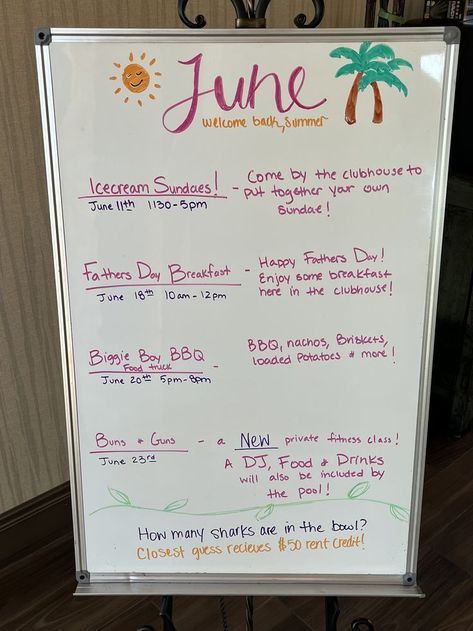 June
welcome back, summer
Icecream Sundaes! - Come by the clubhouse to
June 11th 1130-5pm put together your own
Sundae!
Fathers Day Breakfast - Happy Fathers Day!
June 18th 10am-12pm Enjoy some breakfast
here in the clubhouse!
Biggie Boy BBQ - BBQ, nachos, Briskets,
Food truck loaded potatoes & more!
June 20th 5pm-8pm
Buns & Guns - a New private fitness class!
June 23rd A DJ, Food & Drinks
will also be included by
the pool!
How many sharks are in the bowl?
Closest guess recieves $50 rent credit!